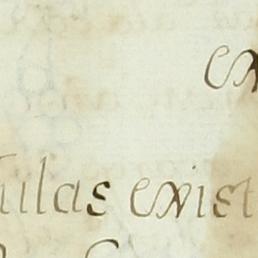 ex
ulas exist